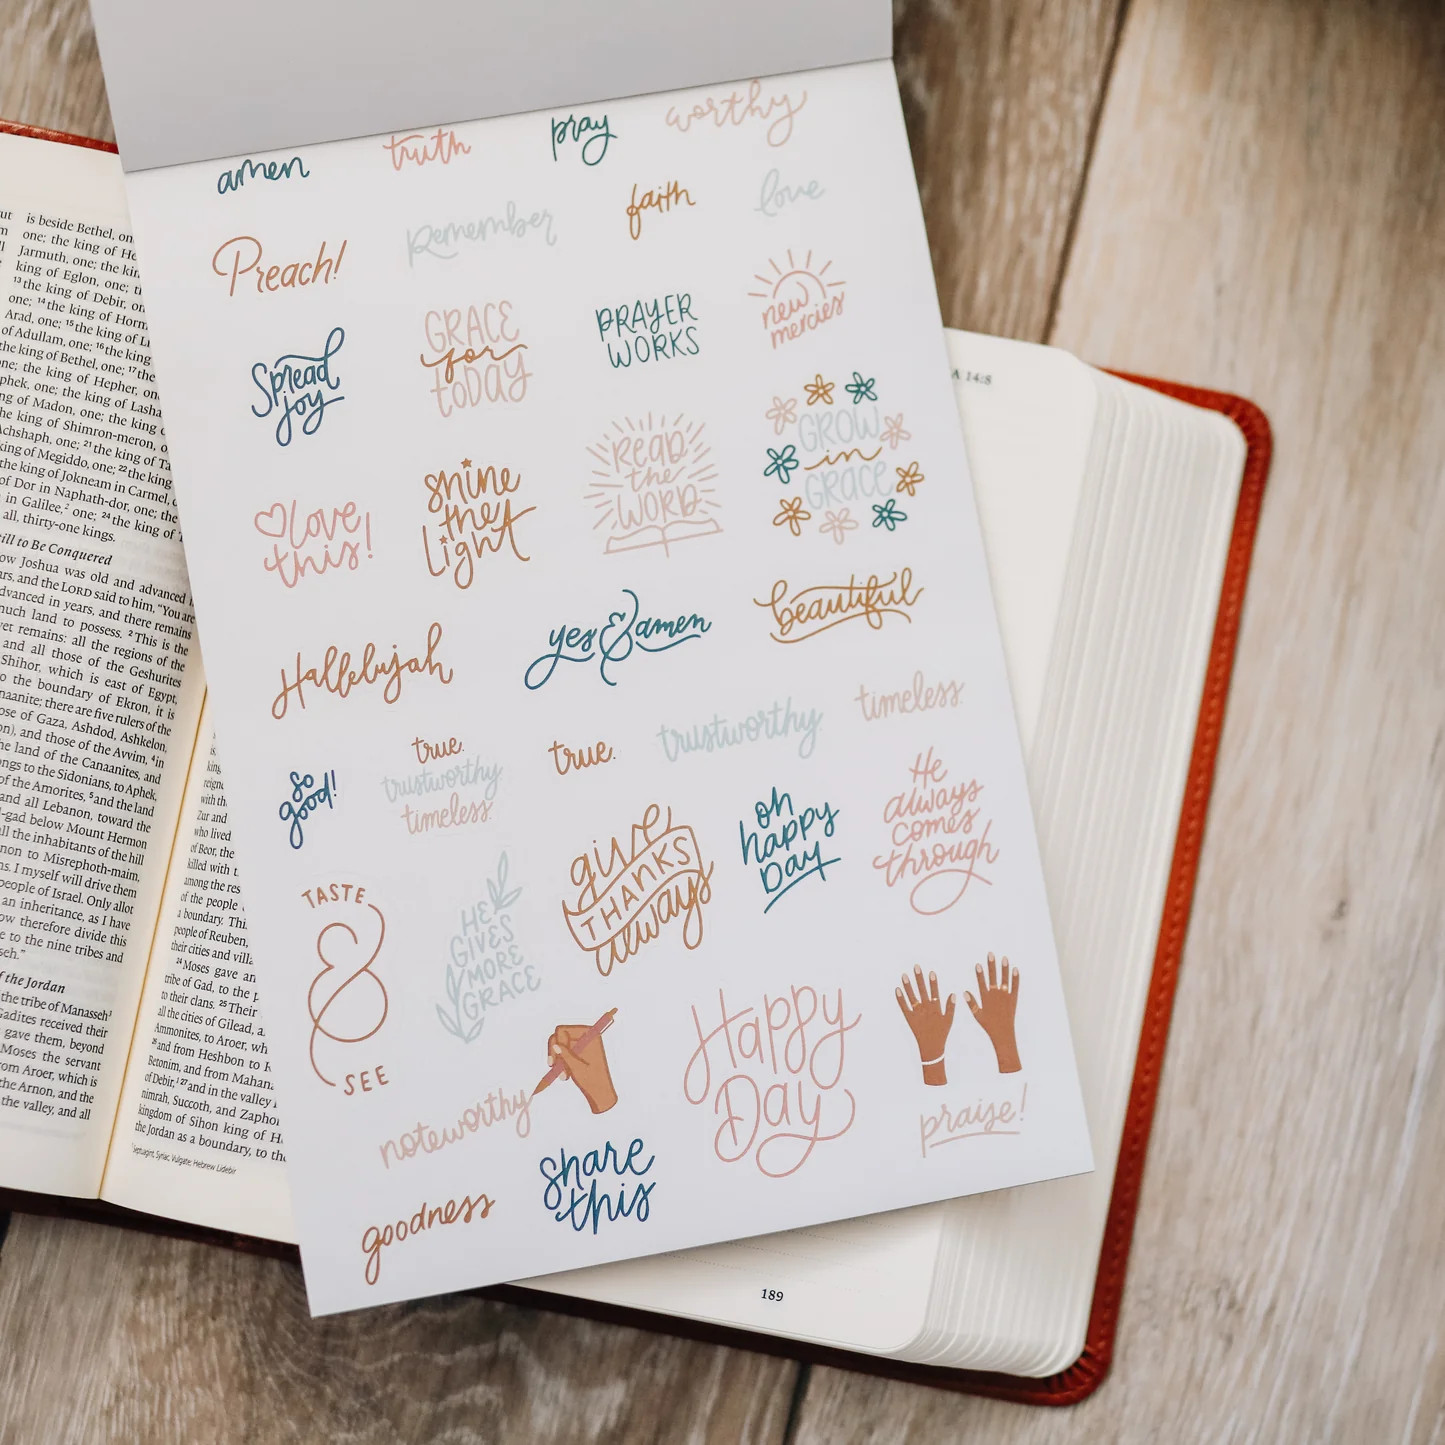 amen
truth
pray
worthy
Preach!
Remember
faith
love
Spread
joy
GRACE
for
TODAY
PRAYER
WORKS
new
mercies
love
this!
shine
the
light
READ
the
WORD
GROW
in
GRACE
Hallelujah
yes & amen
beautiful
so
good!
true.
trustworthy
timeless.
true.
trustworthy
timeless.
TASTE
&
SEE
HE
GIVES
MORE
GRACE
give
THANKS
always
oh
happy
DAY
He
always
comes
through
noteworthy
Happy
Day
praise!
goodness
share
this
is beside Bethel, on
one; the king of He
Jarmuth, one; the kin
king of Eglon, one; t
13 the king of Debir, on
one; 14 the king of Horm
Arad, one; 15 the king of Li
of Adullam, one; 16 the king
the king of Bethel, one; 17 the
one; the king of Hepher, on
phek, one; the king of Lasha
ng of Madon, one; the king
the king of Shimron-meron, o
Achshaph, one; 21 the king of Ta
king of Megiddo, one; 22 the king
the king of Jokneam in Carmel,
of Dor in Naphath-dor, one; the
in Galilee,2 one; 24 the king of T
all, thirty-one kings.
ill to Be Conquered
ow Joshua was old and advanced i
ars, and the LORD said to him, "You are
dvanced in years, and there remains
much land to possess. 2 This is the
yet remains: all the regions of the
and all those of the Geshurites
Shihor, which is east of Egypt,
to the boundary of Ekron, it is
anaanite; there are five rulers of the
ose of Gaza, Ashdod, Ashkelon,
on), and those of the Avvim, 4 in
he land of the Canaanites, and
ongs to the Sidonians, to Aphek,
of the Amorites, 5 and the land
and all Lebanon, toward the
l-gad below Mount Hermon
all the inhabitants of the hill
non to Misrephoth-maim,
ns. I myself will drive them
people of Israel. Only allot
an inheritance, as I have
ow therefore divide this
e to the nine tribes and
sseh."
f the Jordan
the tribe of Manasseh3
Gadites received their
gave them, beyond
Moses the servant
om Aroer, which is
the Arnon, and the
the valley, and all
king
reigne
with th
Zur and
who lived
of Beor, the
killed with t
among the res
of the people
a boundary. Thi
people of Reuben,
their cities and villa
24 Moses gave an
tribe of Gad, to the p
to their clans. 25 Their
all the cities of Gilead, a
Ammonites, to Aroer, wh
26 and from Heshbon to R
Betonim, and from Mahana
of Debir,1 27 and in the valley
nimrah, Succoth, and Zapho
kingdom of Sihon king of H
the Jordan as a boundary, to the
Septuagint, Syriac, Vulgate; Hebrew Lidebir
A 14:8
189